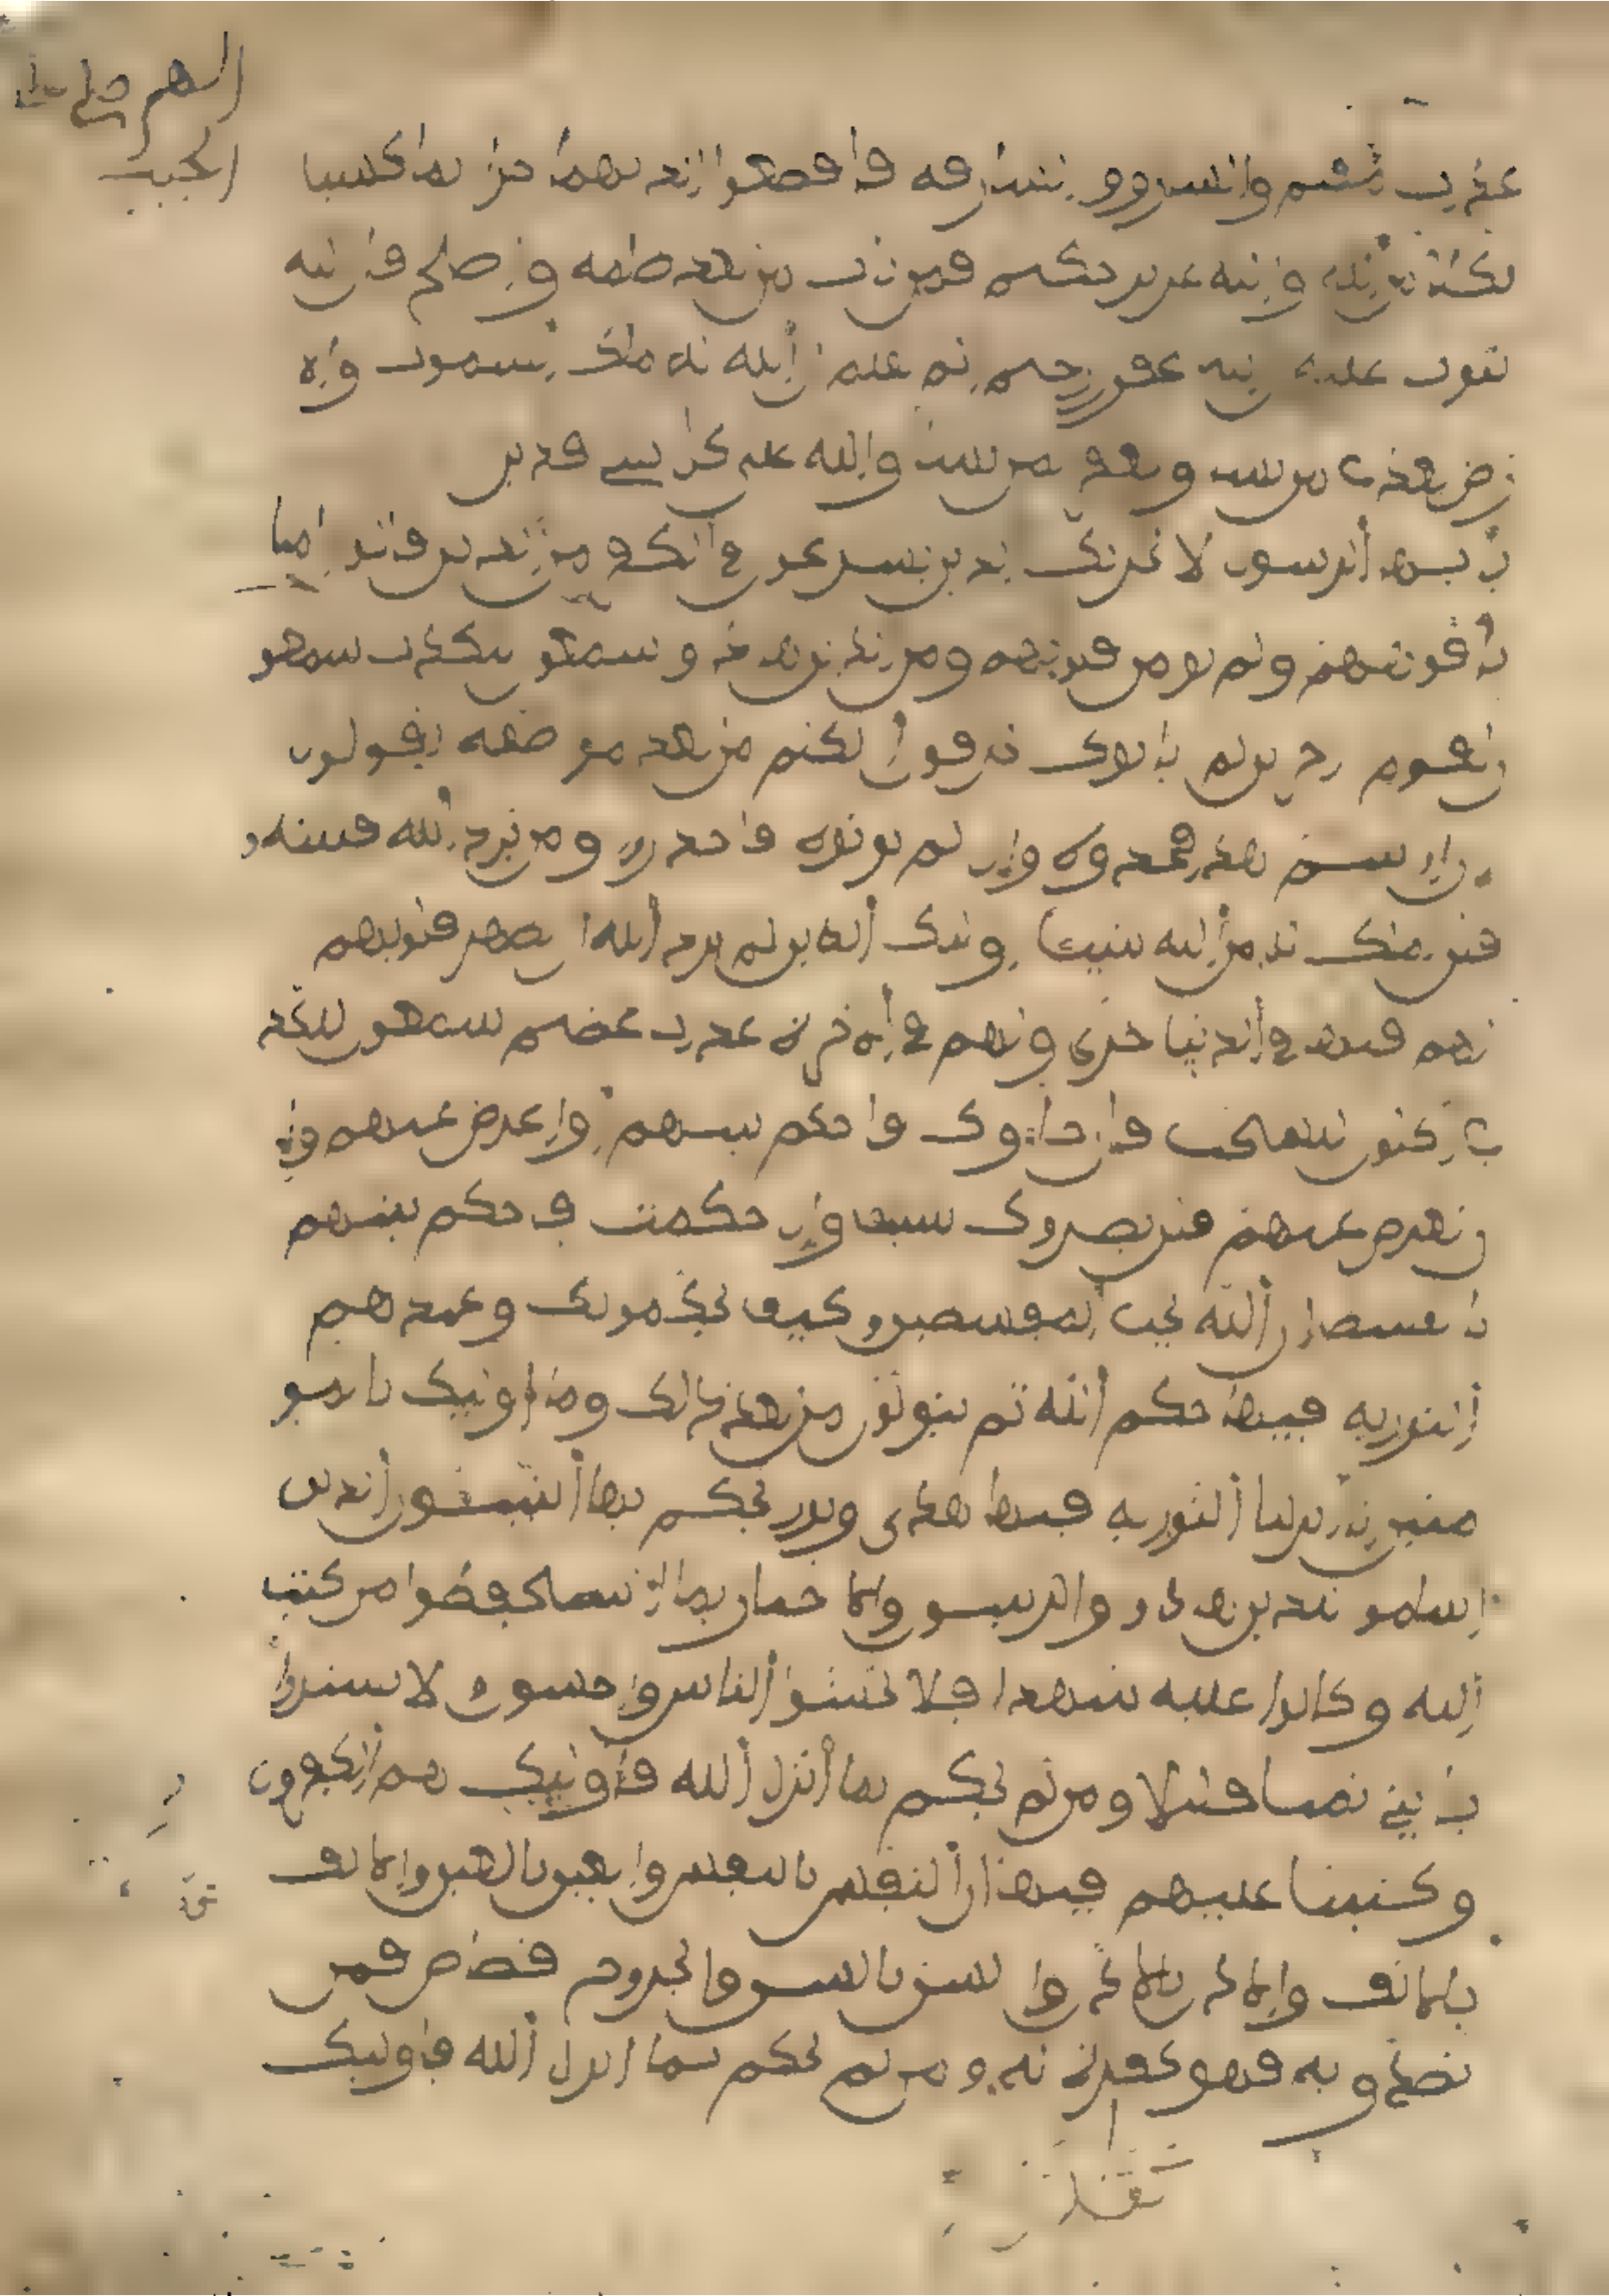 اللهم صل على
الحبيب
عذاب مقيم والسارق والسارقة فاقطعوا أيديهما جزاء بما كسبا
نكلا من الله والله عزيز حكيم فمن تاب من بعد ظلمه وأصلح فإن الله
يتوب عليه إن الله غفور رحيم ألم تعلم أن الله له ملك السموت والا
رض يعذب من يشاء ويغفر لمن يشاء والله على كل شيء قدير
يأيها الرسول لا يحزنك الذين يسرعون في الكفر من الذين قالوا امنا
بأفوههم ولم تومن قلوبهم ومن الذين هادوا سمعون للكذب سمعون
لقوم اخرين لم ياتوك يحرفون الكلم من بعد مواضعه يقولون
إن أوتيتم هذا فخذوه وإن لم توتوه فاحذروا ومن يرد الله فتنته
فلن تملك له من الله شيئا أولئك الذين لم يرد الله أن يطهر قلوبهم
لهم في الدنيا خزي ولهم في الاخرة عذاب عظيم سمعون للكذ
ب أكلون للسحت فإن جاءوك فاحكم بينهم أو أعرض عنهم وإن
تعرض عنهم فلن يضروك شيئا وإن حكمت فاحكم بينهم
بالقسط إن الله يحب المقسطين وكيف يحكمونك وعندهم
التورية فيها حكم الله ثم يتولون من بعد ذلك وما أولئك بالمو
منين إنا أنزلنا التورية فيها هدى ونور يحكم بها النبيئون الذين
أسلموا للذين هادوا والربنيون والاحبار بما استحفظوا من كتب
الله وكانوا عليه شهداء فلا تخشوا الناس واخشون ولا تشتروا
بايتي ثمنا قليلا ومن لم يحكم بما أنزل الله فأولئك هم الكفرون
وكتبنا عليهم فيها أن النفس بالنفس والعين بالعين والانف
بالانف والاذن بالاذن والسن بالسن والجروح قصاص فمن
تصدق به فهو كفارة له ومن لم يحكم بما أنزل الله فأولئك